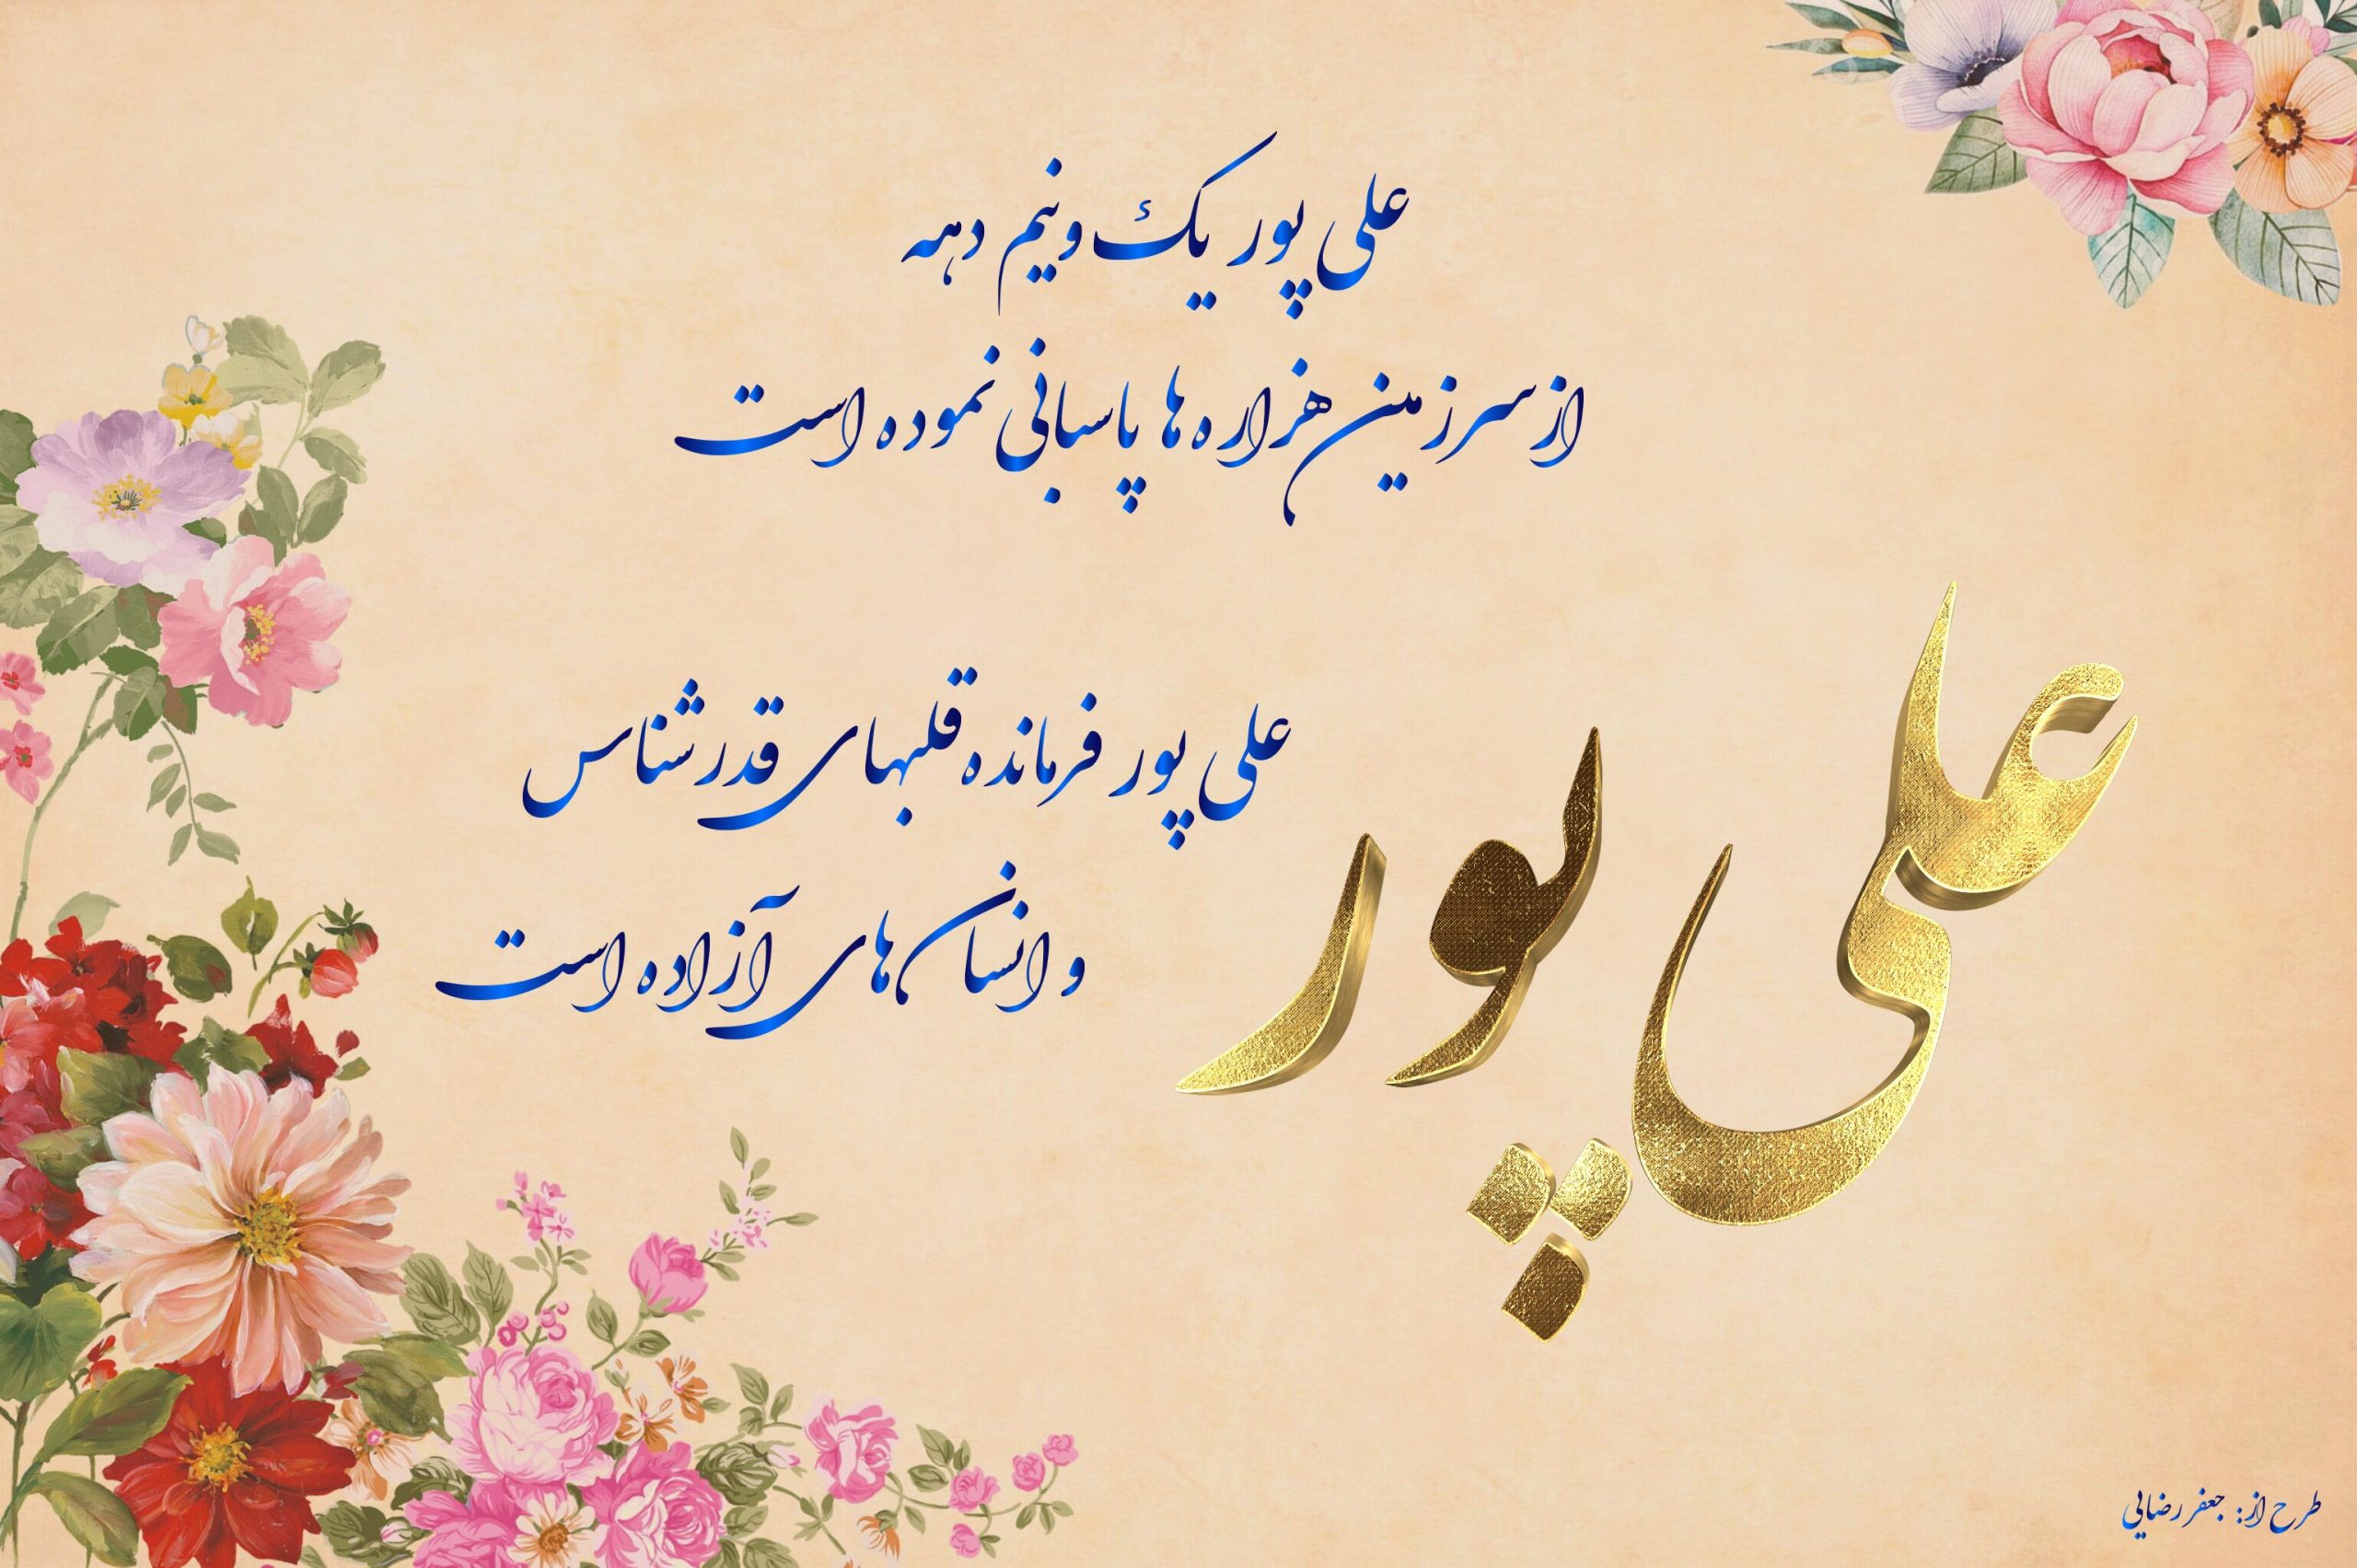 علی پور یک و نیم دهه
از سرزمین هزاره ها پاسبانی نموده است
علی پور فرمانده قلبهای قدرشناس
و انسان های آزاده است
علی پور
طرح از: جعفر رضایی